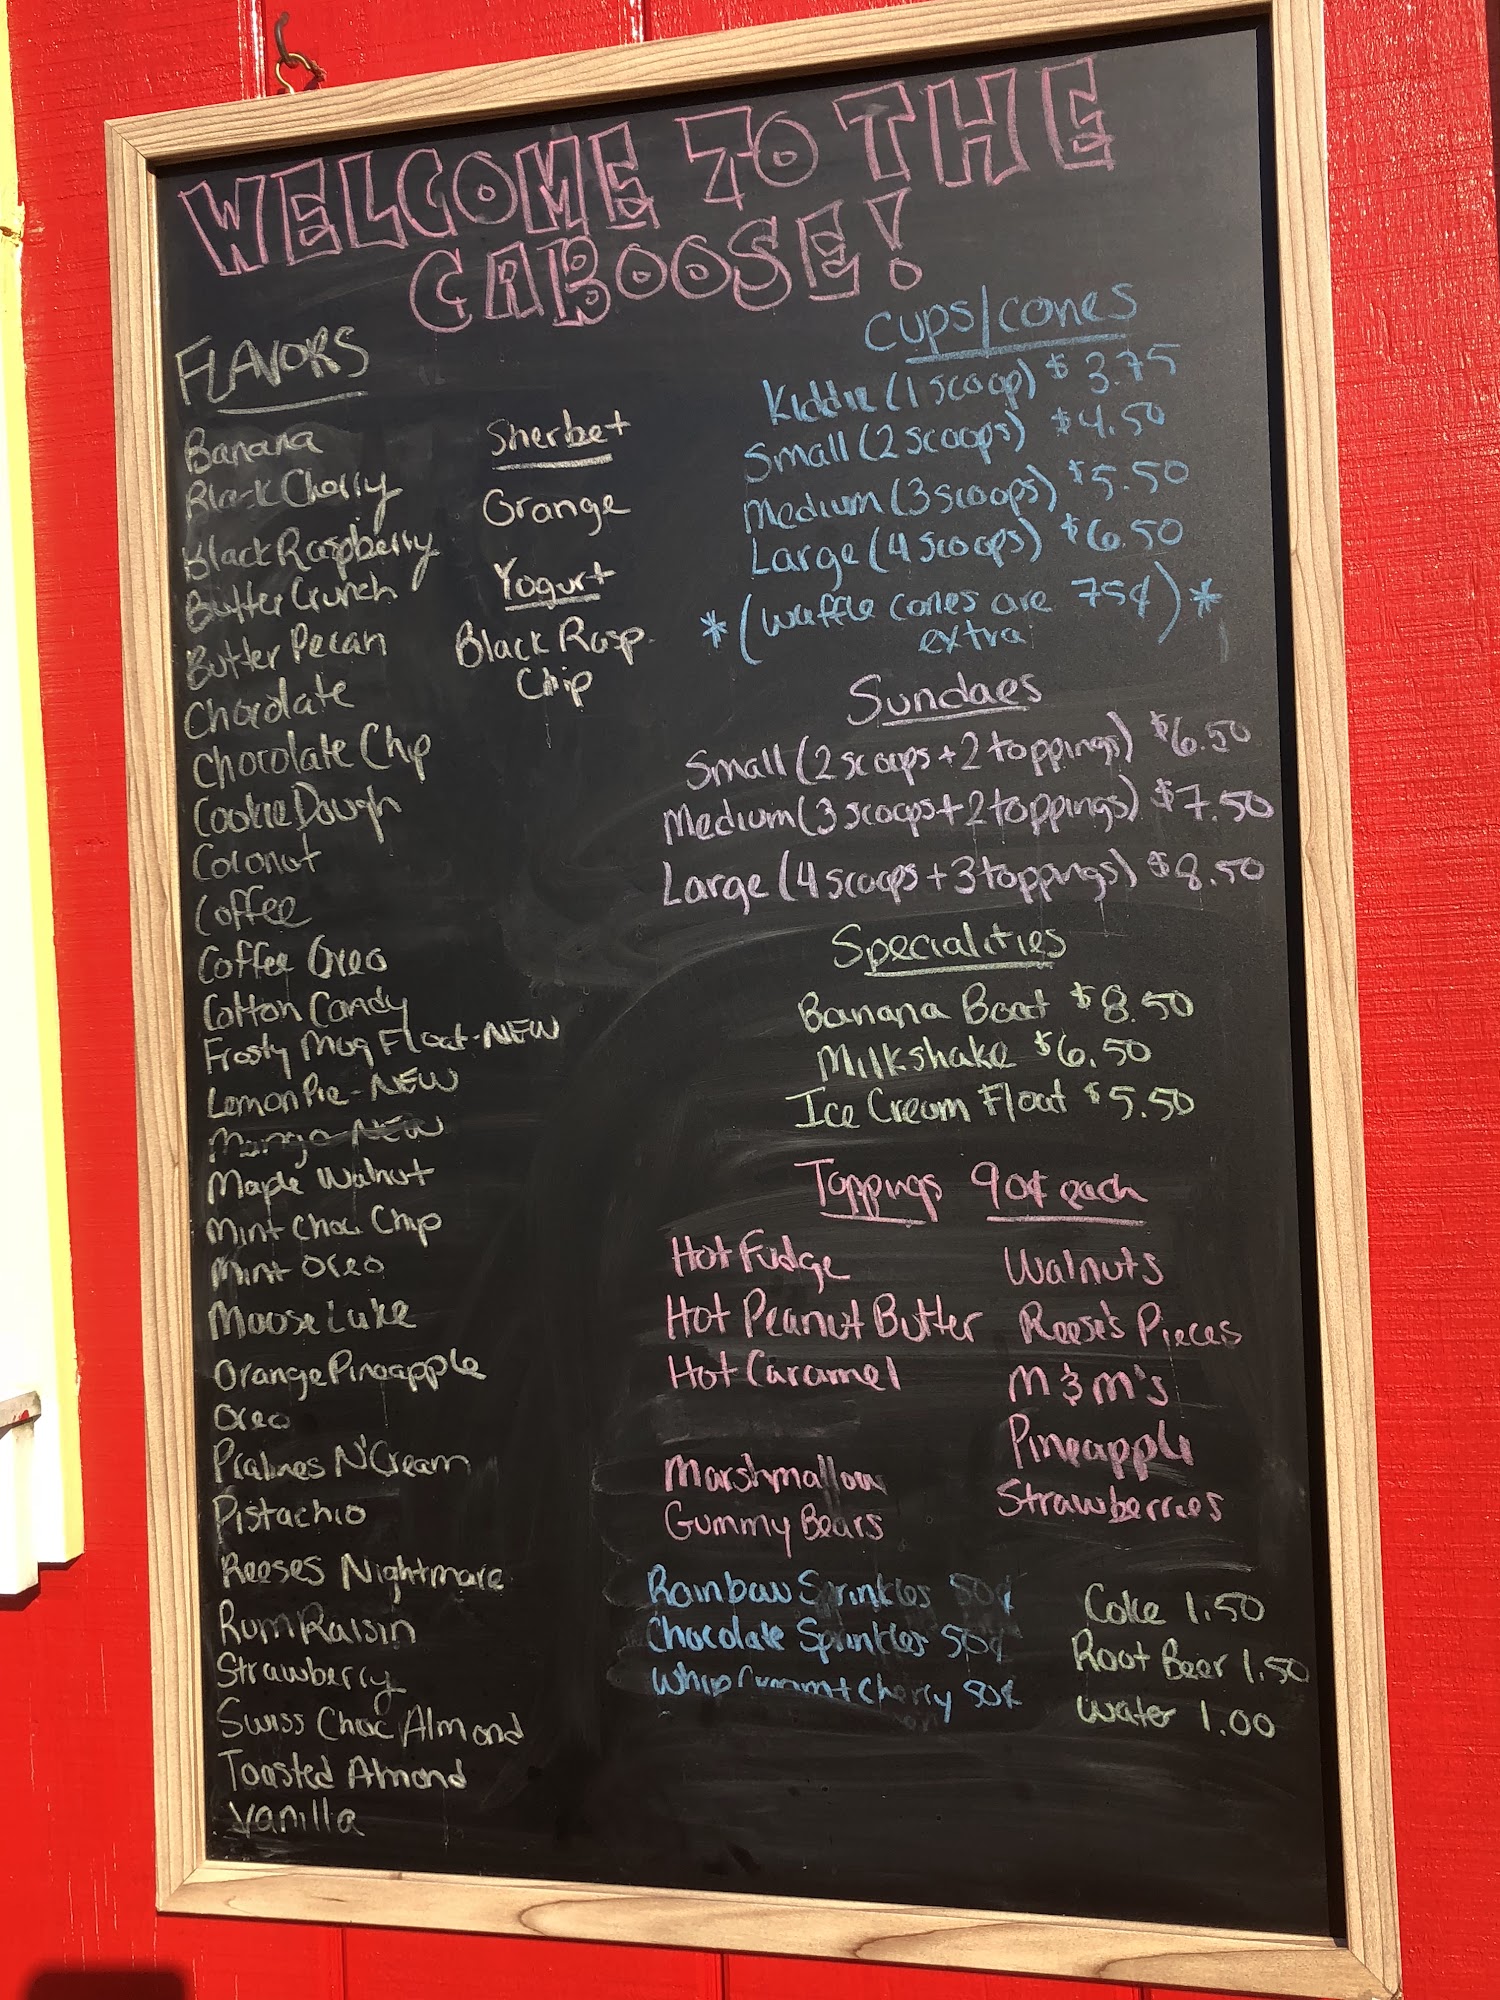 WELCOME TO THE
CABOOSE!
FLAVORS
Banana
Black Cherry
Black Raspberry
Butter Crunch
Butter Pecan
Chocolate
Chocolate Chip
Cookie Dough
Coconut
Coffee
Coffee Oreo
Cotton Candy
Frosty Mug Float-NEW
Lemon Pie-NEW
Mango-NEW
Maple Walnut
Mint Choc Chip
Mint Oreo
Moose Lake
Orange Pineapple
Oreo
Pralines N' Cream
Pistachio
Reeses Nightmare
Rum Raisin
Strawberry
Swiss Choc Almond
Toasted Almond
Vanilla
Sherbet
Orange
Yogurt
Black Rasp.
Chip
Cups/Cones
Kiddie (1 scoop) $3.75
Small (2 scoops) $4.50
Medium (3 scoops) $5.50
Large (4 scoops) $6.50
*(waffle cones are 75¢)*
extra
Sundaes
Small (2 scoops + 2 toppings) $6.50
Medium (3 scoops + 2 toppings) $7.50
Large (4 scoops + 3 toppings) $8.50
Specialities
Banana Boat $8.50
Milkshake $6.50
Ice Cream Float $5.50
Toppings 90¢ each
Hot Fudge
Hot Peanut Butter
Hot Caramel
Marshmallow
Gummy Bears
Walnuts
Reese's Pieces
M&M's
Pineapple
Strawberries
Rainbow Sprinkles 50¢
Chocolate Sprinkles 50¢
Whip Cream + Cherry 80¢
Coke 1.50
Root Beer 1.50
Water 1.00